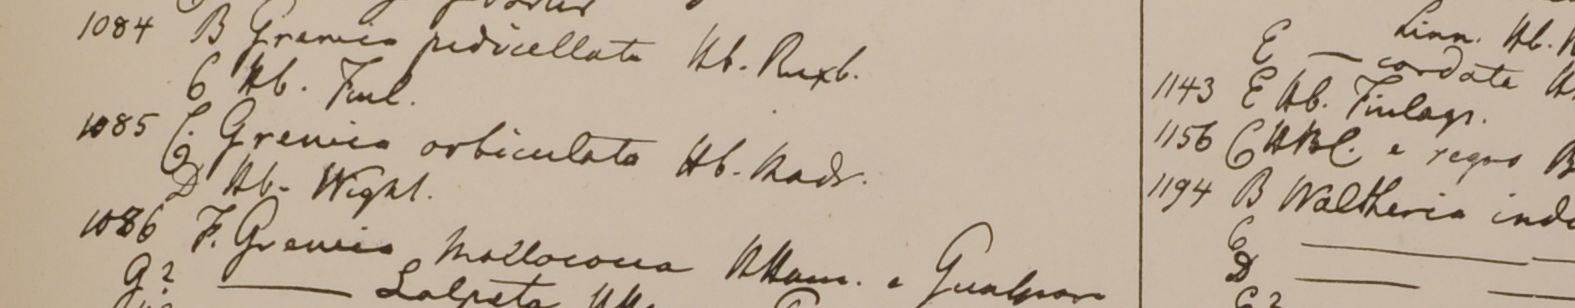 1084 B Grewia pedicellata Hb. Roxb.
C Hb. Finl.
1085 C. Grewia orbiculata Hb. Madr.
D Hb. Wight.
1086 F. Grewia Mallococca HHam. e Gualpara
G? —— Salpeta HHa
Linn. Hb.
E — cordata
1143 E Hb. Finlays.
1156 C HBC. e regno B
1194 B Waltheria ind
C ——
D —— ——
G?